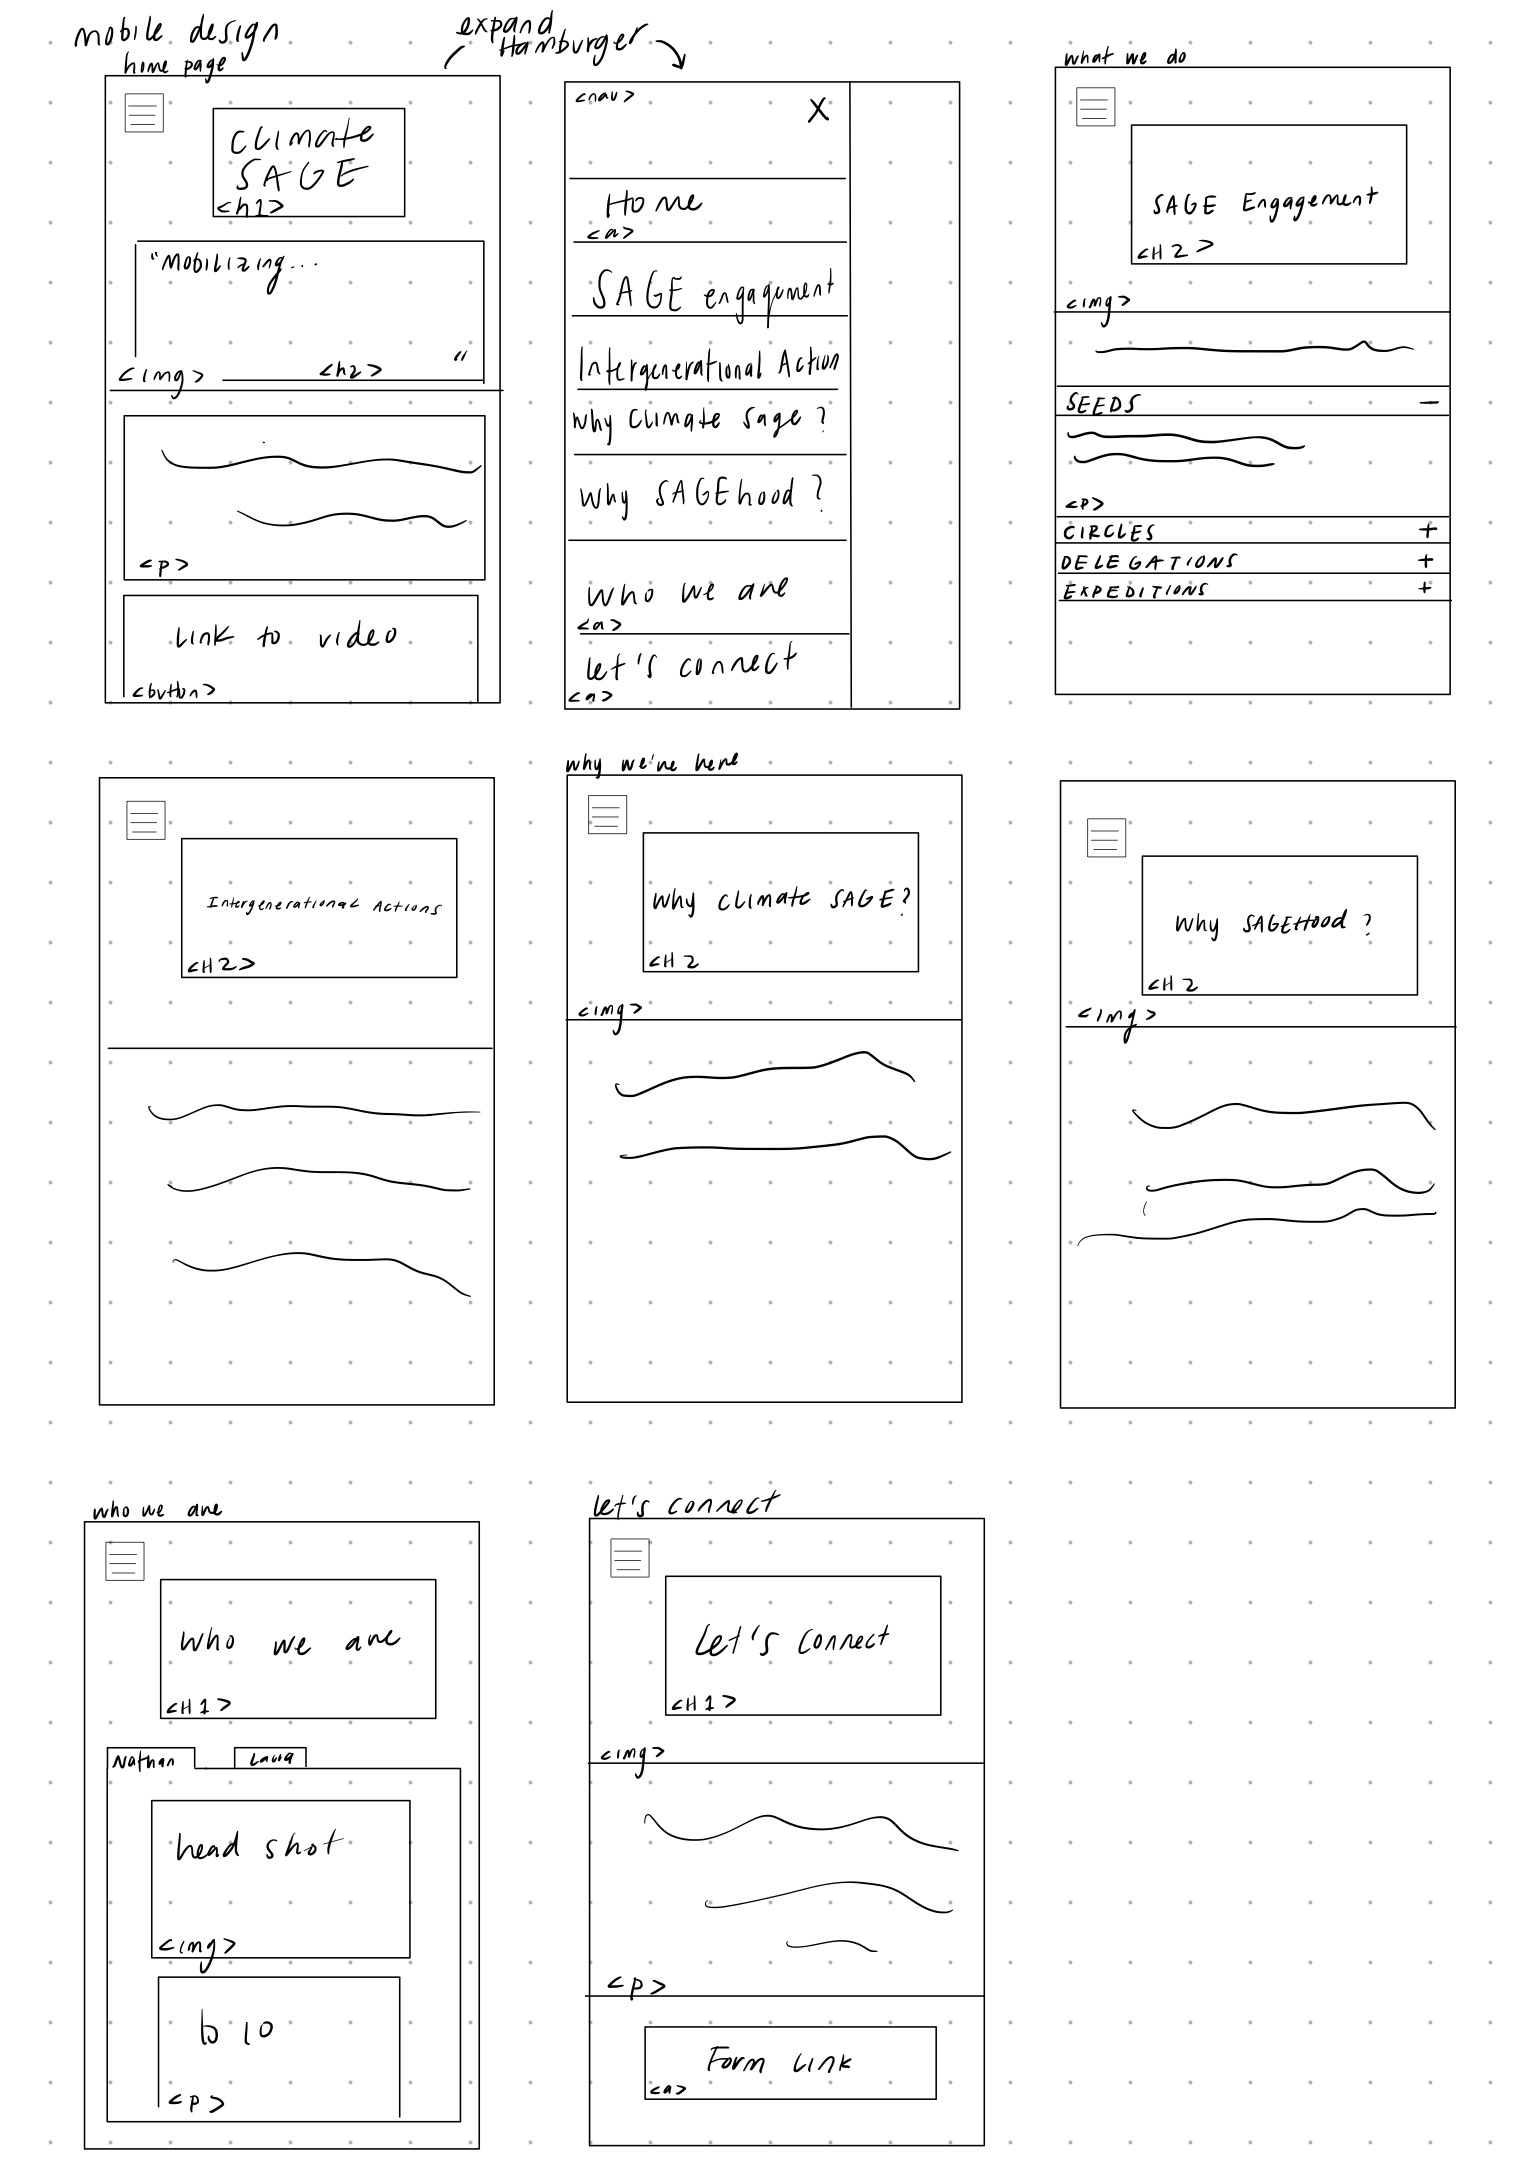 mobile design
home page
CLimate
SAGE
<h1>
"Mobilizing...
"
<img>
<h2>
<p>
Link to video
<button>
expand
Hamburger
<nav>
X
Home
<a>
SAGE engagement
Intergenerational Action
Why Climate Sage ?
Why SAGEhood ?
Who we are
<a>
Let's connect
<a>
what we do
SAGE Engagement
<H2>
<img>
SEEDS −
<p>
CIRCLES +
DELEGATIONS +
EXPEDITIONS +
Intergenerational Actions
<H2>
why we're here
Why CLimate SAGE?
<H2
<img>
Why SAGEHood ?
<H2
<img>
who we are
Who we are
<H1>
Nathan
Laura
head shot
<img>
bio
<p>
Let's connect
Let's Connect
<H1>
<img>
<p>
Form Link
<a>